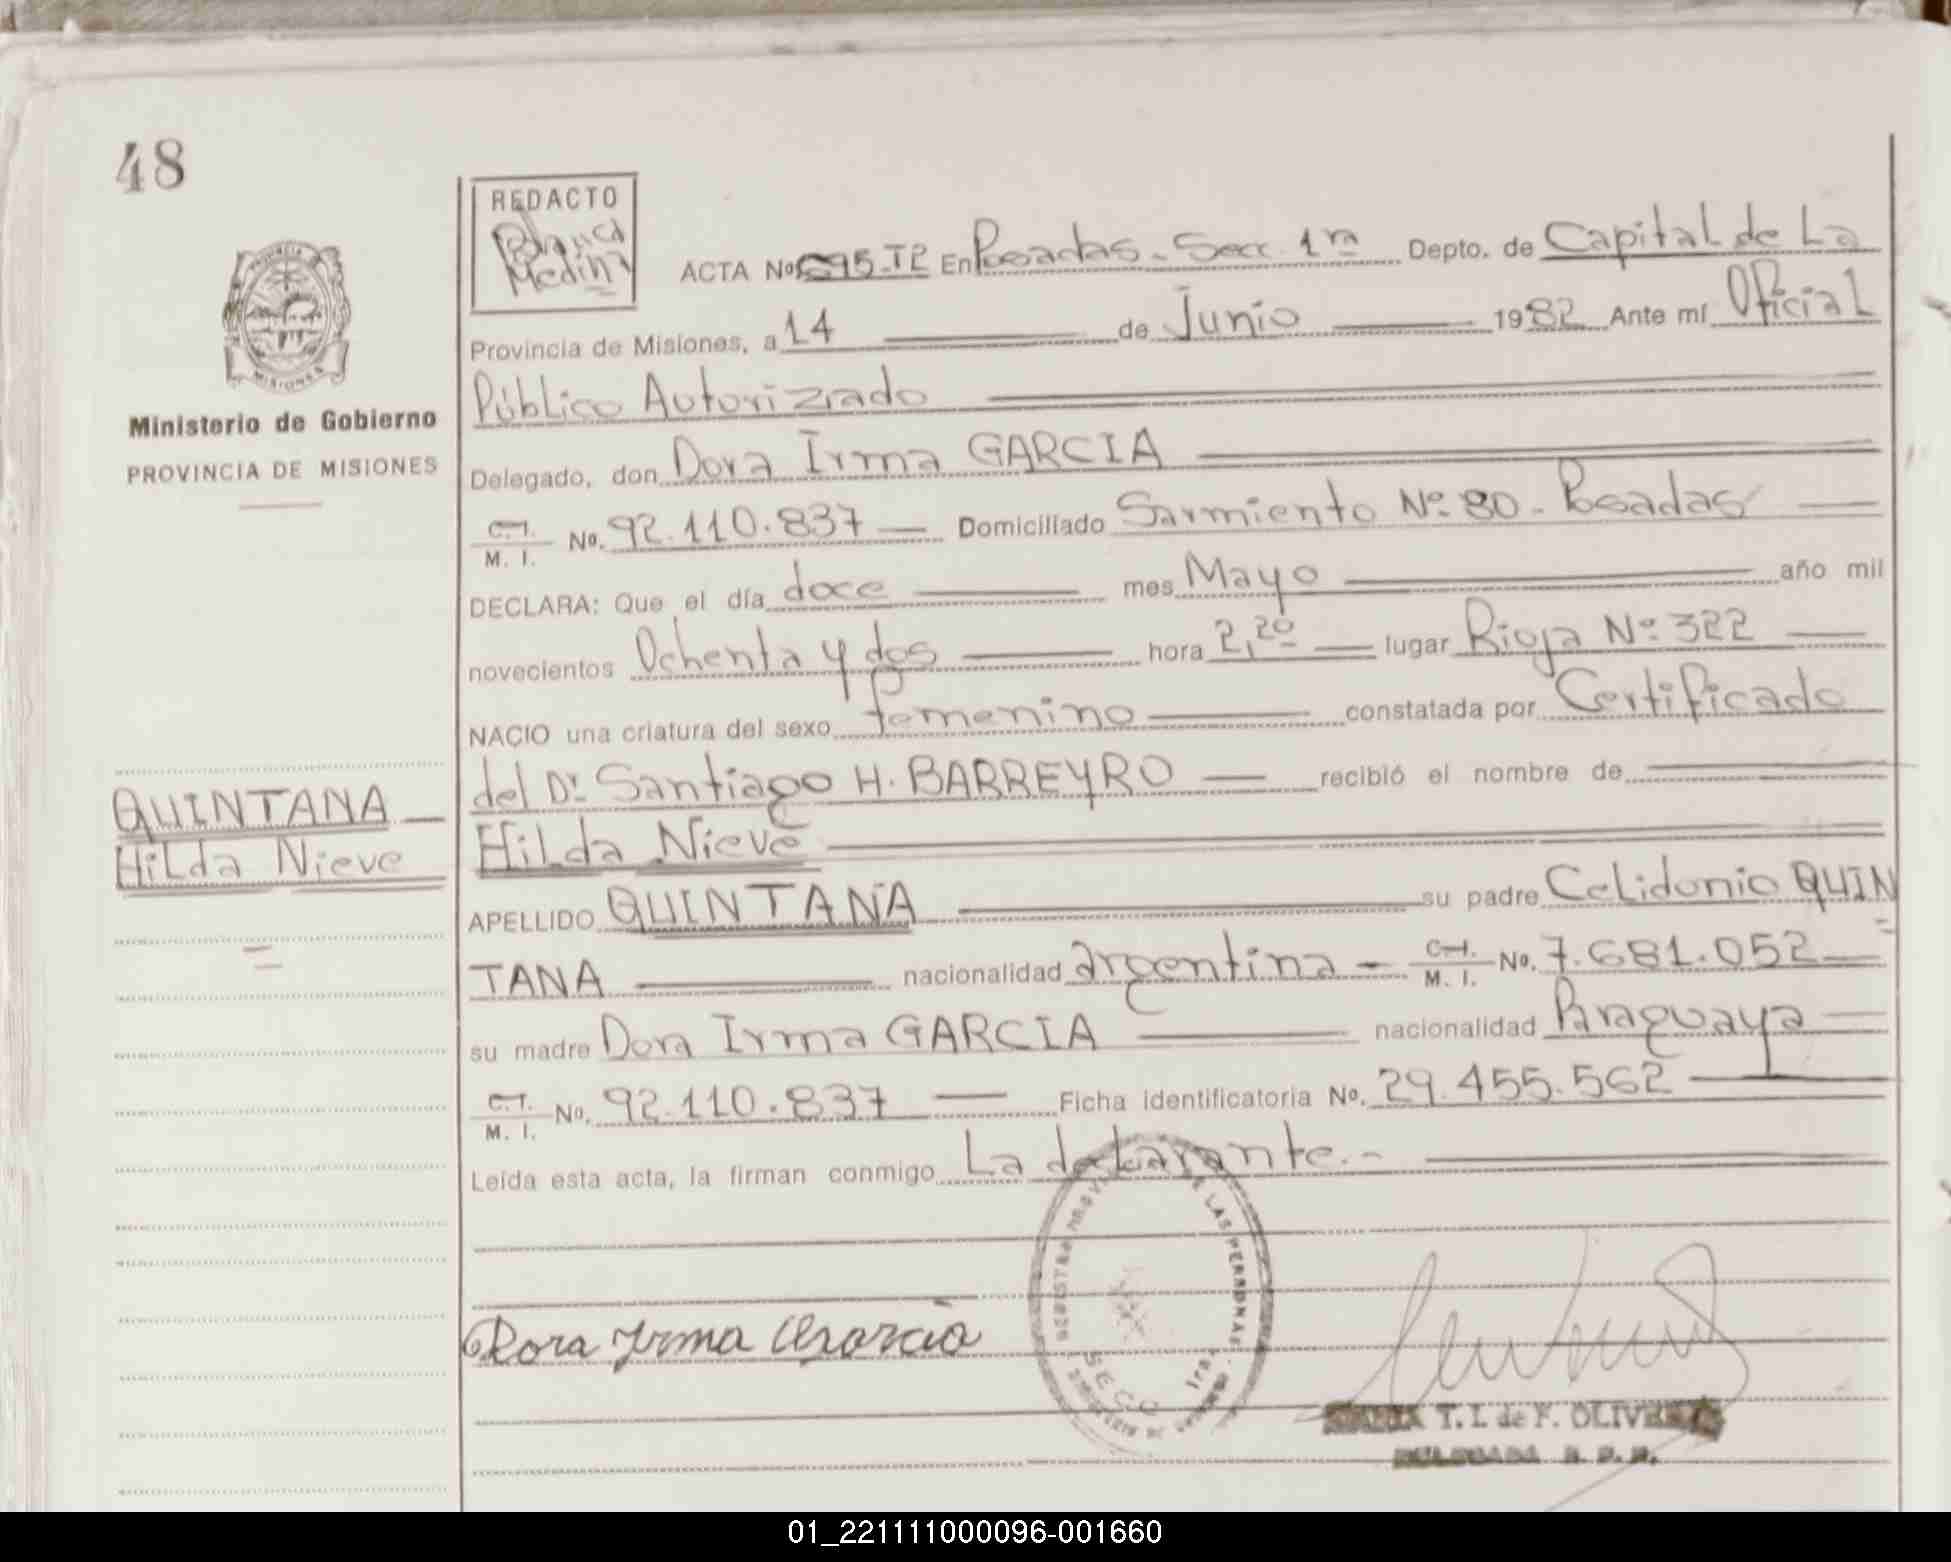 48
REDACTO
Blanca
Medina
ACTA No 695-T2 En Posadas - Secc. 1ra Depto. de Capital de La
Provincia de Misiones, a 14 de Junio 1982 Ante mí Oficial
Público Autorizado
Ministerio de Gobierno
PROVINCIA DE MISIONES
Delegado, don Dora Irma GARCIA
C.I. M. I. No. 92.110.837 Domiciliado Sarmiento Nº 80 - Posadas
DECLARA: Que el día doce mes Mayo año mil
novecientos Ochenta y dos hora 2,20 lugar Rioja Nº 322
NACIO una criatura del sexo femenino constatada por Certificado
del Dr. Santiago H. BARREYRO recibió el nombre de
QUINTANA
Hilda Nieve
Hilda Nieve
APELLIDO QUINTANA su padre Celidonio QUIN
TANA nacionalidad argentina - C.I. M. I. No. 7.681.052
su madre Dora Irma GARCIA nacionalidad Paraguaya
C.I. M. I. No. 92.110.837 Ficha identificatoria No. 29.455.562
Leída esta acta, la firman conmigo La declarante.-
Dora Irma Garcia
LAS PERSONAS
SECC 1ra
T. I. de F. OLIVERA
DELEGADA R. P. P.
01_221111000096-001660